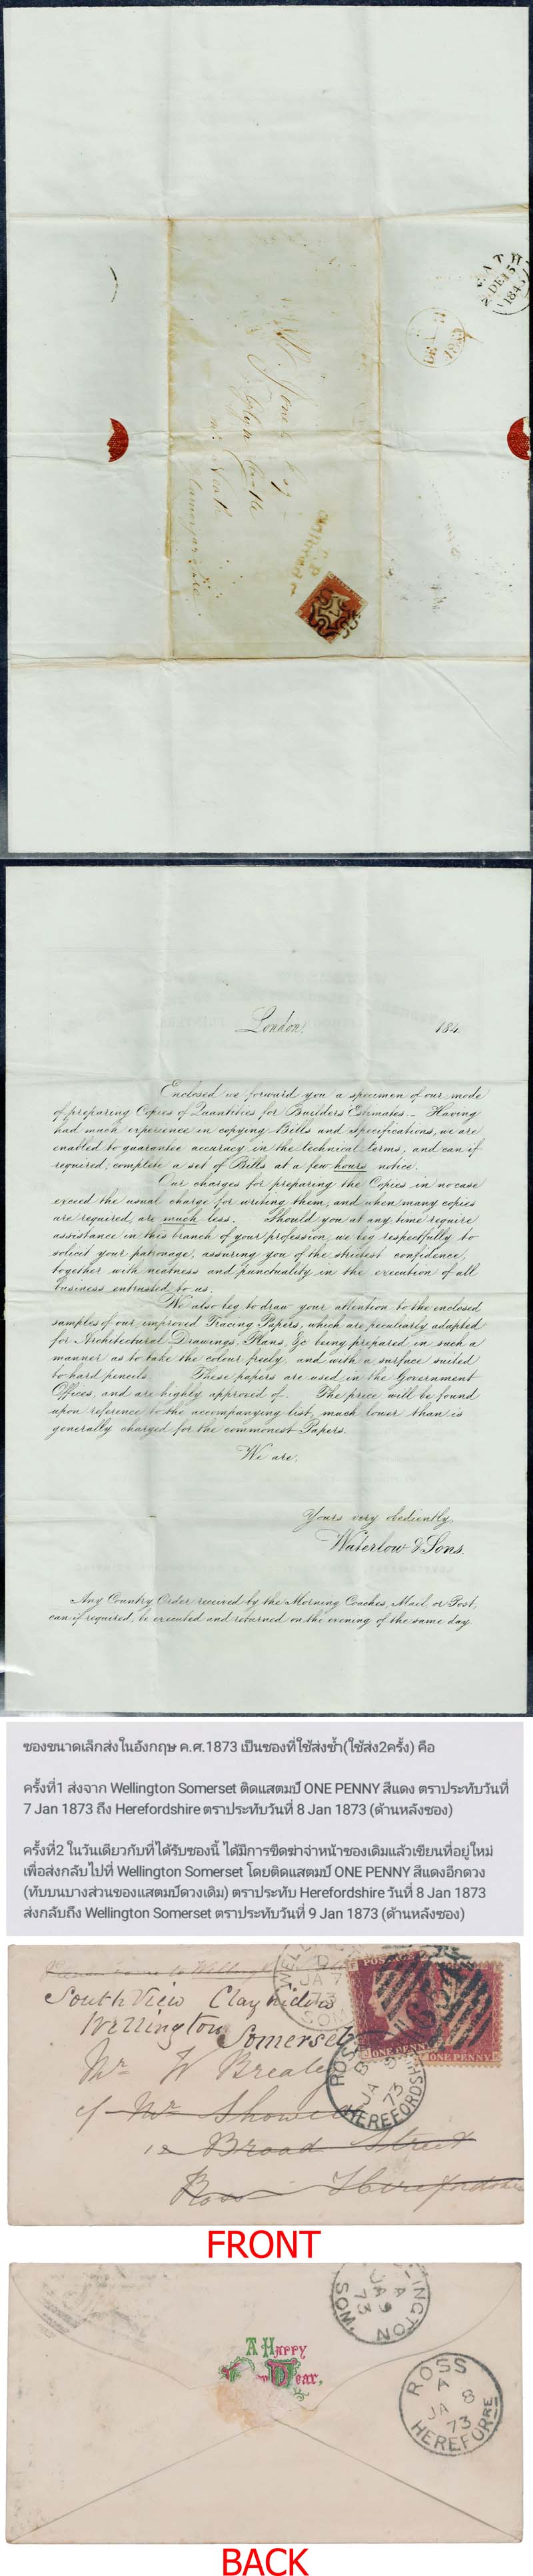 NEATH
DE 15
1843
London,
184
Enclosed we forward you a specimen of our mode
of preparing Copies of Quantities for Builders Estimates._ Having
had much experience in copying Bills and specifications, we are
enabled to guarantee accuracy in the technical terms, and can if
required, complete a set of Bills at a few hours notice.
Our charges for preparing the Copies in no case
exceed the usual charge for writing them, and when many copies
are required, are much less. Should you at any time require
assistance in this branch of your profession, we beg respectfully to
solicit your patronage, assuring you of the strictest confidence,
together with neatness and punctuality in the execution of all
business entrusted to us.
We also beg to draw your attention to the enclosed
samples of our improved Tracing Papers, which are peculiarly adapted
for Architectural Drawings, Plans, &c being prepared in such a
manner as to take the colour freely, and with a surface suited
to hard pencils. These papers are used in the Government
Offices, and are highly approved of. The price will be found
upon reference to the accompanying list, much lower than is
generally charged for the commonest Papers.
We are,
Yours very obediently,
Waterlow & Sons.
Any Country Order received by the Morning Coaches, Mail, or Post,
can if required, be executed and returned on the evening of the same day.
ซองขนาดเล็กส่งในอังกฤษ ค.ศ.1873 เป็นซองที่ใช้ส่งซ้ำ(ใช้ส่ง2ครั้ง) คือ
ครั้งที่1 ส่งจาก Wellington Somerset ติดแสตมป์ ONE PENNY สีแดง ตราประทับวันที่
7 Jan 1873 ถึง Herefordshire ตราประทับวันที่ 8 Jan 1873 (ด้านหลังซอง)
ครั้งที่2 ในวันเดียวกับที่ได้รับซองนี้ ได้มีการขีดฆ่าจ่าหน้าซองเดิมแล้วเขียนที่อยู่ใหม่
เพื่อส่งกลับไปที่ Wellington Somerset โดยติดแสตมป์ ONE PENNY สีแดงอีกดวง
(ทับบนบางส่วนของแสตมป์ดวงเดิม) ตราประทับ Herefordshire วันที่ 8 Jan 1873
ส่งกลับถึง Wellington Somerset ตราประทับวันที่ 9 Jan 1873 (ด้านหลังซอง)
JA 7
73
South View Clayhidon
Wellington Somerset
ONE PENNY ONE PENNY
Mr W Brealey
ROSS
B
JA 8
73
HEREFORDSHIRE
c/ Mr Showell
12 Broad Street
Ross Herefordshire
FRONT
INGTON
A
JA 9
73
SOM
A Happy
Year.
ROSS
A
JA 8
73
HEREFORDSHIRE
BACK